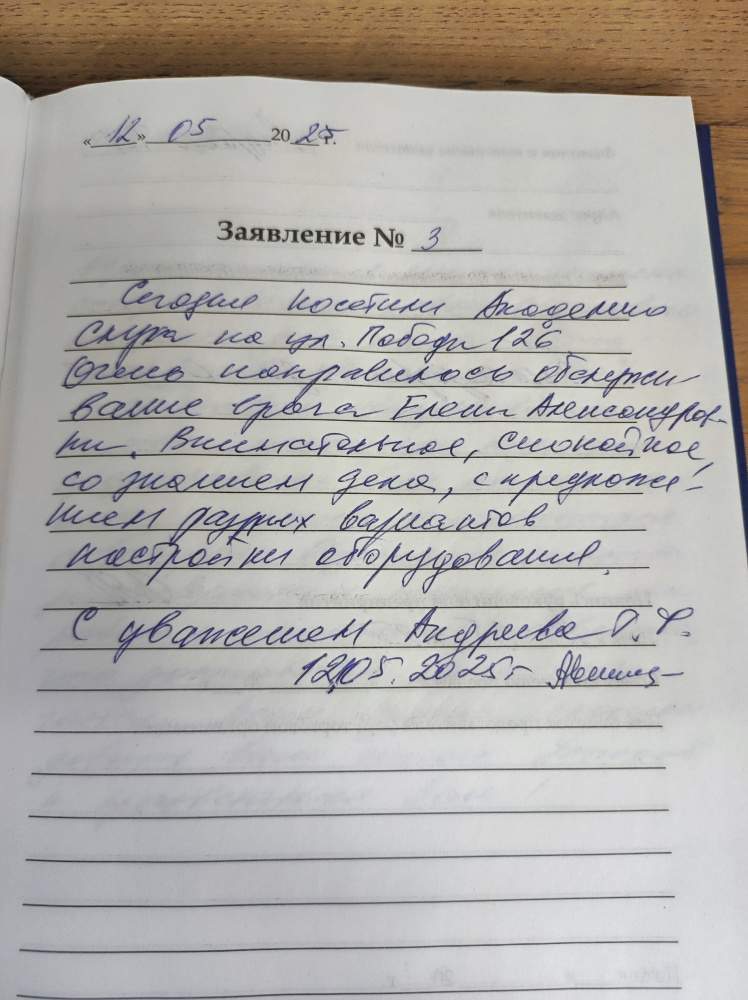 «12» 05 2025 г.
Заявление № 3
Сегодня посетили Академию
слуха на ул. Победы 126
Очень понравилось обслужи-
вание врача Елены Александров-
ны. Внимательное, спокойное,
со знанием дела, с предложе-
нием разных вариантов
настройки оборудования.
С уважением Андреева Г. Ф.
12.05.2025 г